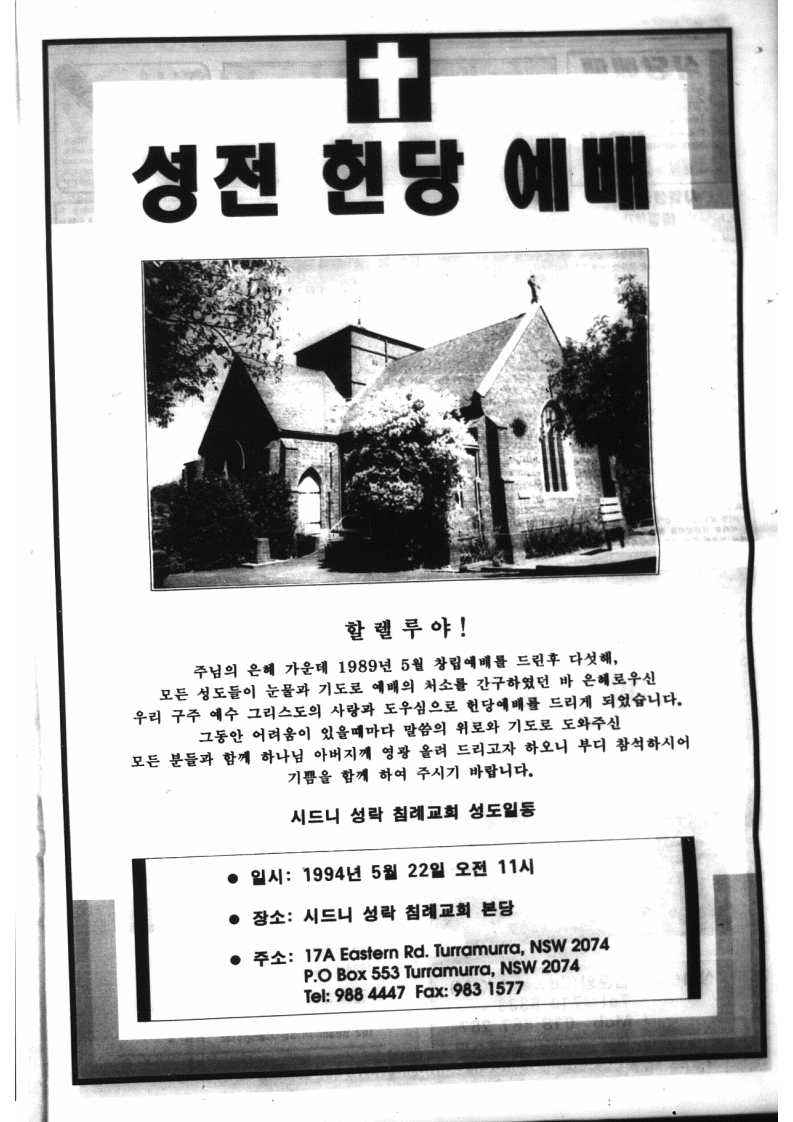 성전 헌당 예배
할렐루야!
주님의 은혜 가운데 1989년 5월 창립예배를 드린후 다섯해,
모든 성도들이 눈물과 기도로 예배의 처소를 간구하였던 바 은혜로우신
우리 구주 예수 그리스도의 사랑과 도우심으로 헌당예배를 드리게 되었습니다.
그동안 어려움이 있을때마다 말씀의 위로와 기도로 도와주신
모든 분들과 함께 하나님 아버지께 영광 올려 드리고자 하오니 부디 참석하시어
기쁨을 함께 하여 주시기 바랍니다.
시드니 성락 침례교회 성도일동
● 일시: 1994년 5월 22일 오전 11시
● 장소: 시드니 성락 침례교회 본당
● 주소: 17A Eastern Rd. Turramurra, NSW 2074
P.O Box 553 Turramurra, NSW 2074
Tel: 988 4447 Fax: 983 1577